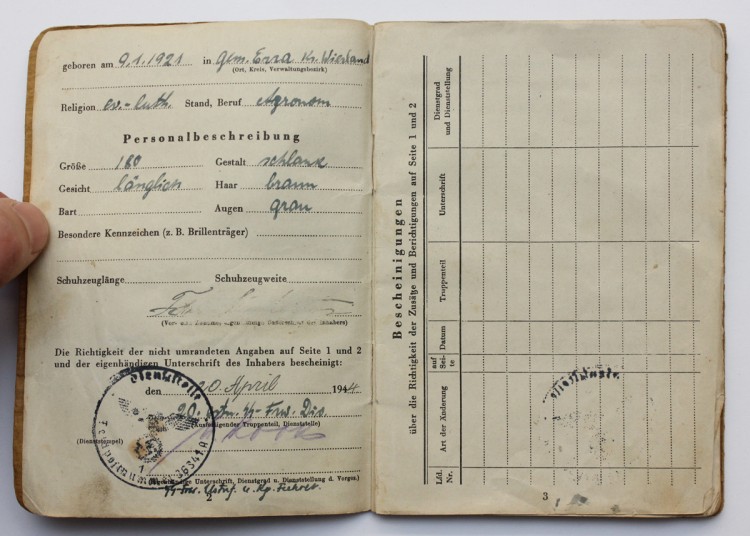 geboren am 9.1.1921 in Gem. Erra Kr. Wierland
(Ort, Kreis, Verwaltungsbezirk)
Religion ev.-luth. Stand, Beruf Agronom
Personalbeschreibung
Größe 180 Gestalt schlank
Gesicht länglich Haar braun
Bart Augen grau
Besondere Kennzeichen (z. B. Brillenträger)
Schuhzeuglänge Schuhzeugweite
Die Richtigkeit der nicht umrandeten Angaben auf Seite 1 und 2
und der eigenhändigen Unterschrift des Inhabers bescheinigt:
den 20. April 1944
20. Div.
(Ausfertigender Truppenteil, Dienststelle)
(Dienststempel)
(Eigenhändige Unterschrift, Dienstgrad u. Dienststellung d. Vorges.)
Dienststelle
Feldpostnummer
2
Bescheinigungen
über die Richtigkeit der Zusätze und Berichtigungen auf Seite 1 und 2
Lfd. Nr.
Art der Änderung
auf Seite
Datum
Truppenteil
Unterschrift
Dienstgrad und Dienststellung
3